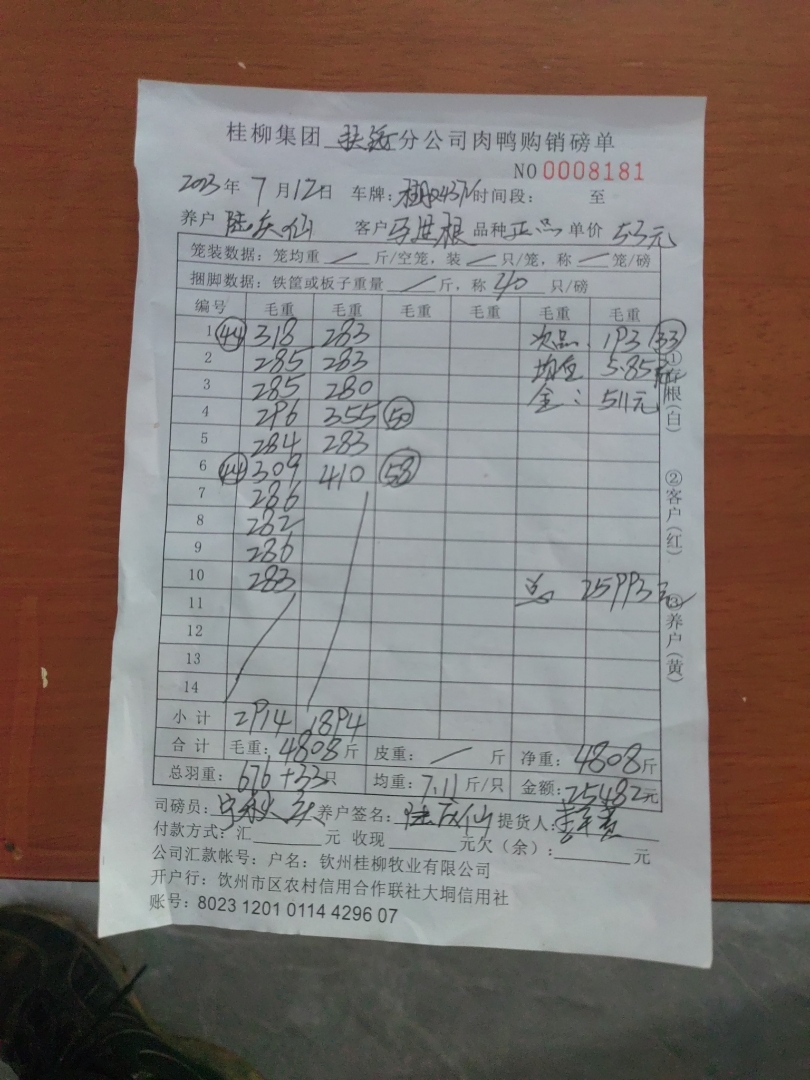 桂柳集团 扶绥 分公司肉鸭购销磅单
NO 0008181
2023年 7月12日 车牌: 时间段: 至
养户 陆庆仙 客户 马进根 品种 正品 单价 5.3元
笼装数据：笼均重 / 斤/空笼，装 / 只/笼，称 / 笼/磅
捆脚数据：铁筐或板子重量 / 斤，称 40 只/磅
编号 毛重 毛重 毛重 毛重 毛重 毛重
1 44 318 283 次品: 193 33
2 285 283 均重 5.85
3 285 280 金: 511元
4 296 355 50
5 284 283
6 44 309 410 58
7 286
8 282
9 286
10 283 总 25993元
11
12
13
14
小计 2914 1894
合计 毛重: 4808斤 皮重: / 斤 净重: 4808斤
总羽重: 676+33只 均重: 7.11斤/只 金额: 25482元
司磅员: 养户签名: 陆庆仙 提货人:
付款方式：汇 元 收现 元欠（余）: 元
公司汇款帐号：户名：钦州桂柳牧业有限公司
开户行：钦州市区农村信用合作联社大垌信用社
账号：8023 1201 0114 4296 07
①存根(白)
②客户(红)
③养户(黄)